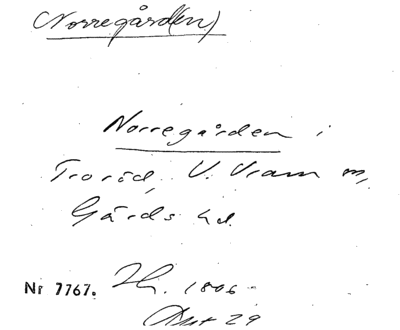 Norregård(en)
Norregården i
Troröd, V. Vram sn,
Gärds hd.
Nr 7767. Hf. 1806
29